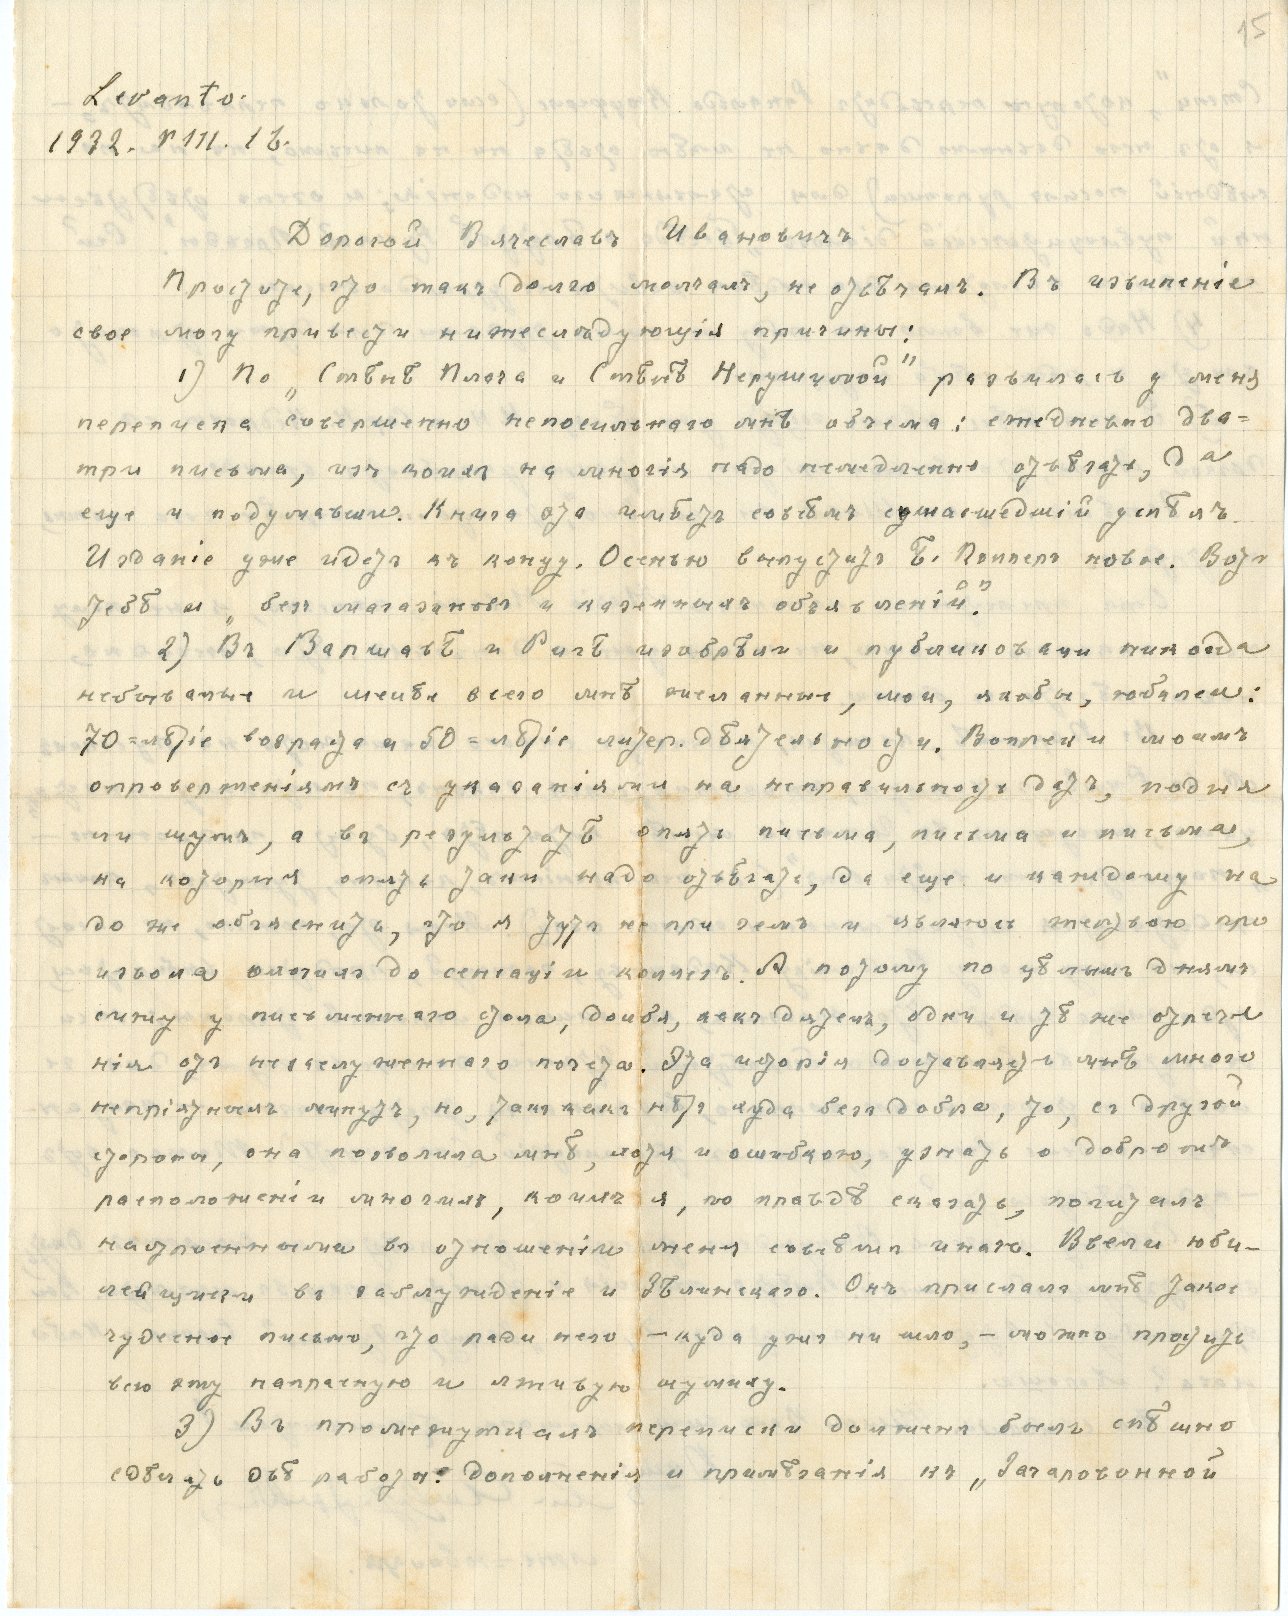 15
Levanto.
1932. VIII. 16.
Дорогой Вячеславъ Ивановичъ
Простите, что такъ долго молчалъ, не отвѣчалъ. Въ извиненіе
свое могу привести нижеслѣдующія причины:
1) По „Стѣнѣ Плача и Стѣнѣ Нерушимой" развилась у меня
переписка совершенно непосильнаго мнѣ объема: ежедневно два=
три письма, изъ коихъ на многія надо немедленно отвѣчать, да
еще и подумавши. Книга эта имѣетъ совсѣмъ сумасшедшій успѣхъ.
Изданіе уже идетъ къ концу. Осенью выпуститъ Е.Köhler новое. Вотъ
тебѣ и „безъ магазановъ и казенныхъ объявленій".
2) Въ Варшавѣ и Ригѣ изобрѣли и публиковали никогда
небывалые и менѣе всего мнѣ желанные, мои, якобы, юбилеи:
70=лѣтіе возраста и 50=лѣтіе литер. дѣятельности. Вопреки моимъ
опроверженіямъ съ указаніями на неправильность датъ, подня
ли шумъ, а въ результатѣ опять письма, письма и письма,
на которыя опять таки надо отвѣчать, да еще и каждому на
до же объяснить, что я тутъ не при чемъ и являюсь жертвою про
извола охочихъ до сенсаціи коллегъ. А потому по цѣлымъ днямъ
сижу у письменнаго стола, долбя, какъ дятелъ, одни и тѣ же отрече
нія отъ незаслуженнаго почета. Эта исторія доставляетъ мнѣ много
непріятныхъ минутъ, но, такъ какъ нѣтъ худа безъ добра, то, съ другой
стороны, она позволила мнѣ, хотя и ошибкою, узнать о добромъ
расположеніи многихъ, коихъ я, по правдѣ сказать, почиталъ
настроенными въ отношеніи меня совсѣмъ иначе. Ввели юби-
лейщики въ заблужденіе и Зѣлинскаго. Онъ прислалъ мнѣ такое
чудесное письмо, что ради него – куда ужъ ни шло, – можно простить
всю эту напрасную и лживую шумиху.
3) Въ промежуткахъ переписки долженъ былъ спѣшно
сдѣлать двѣ работы: дополненія и примѣчанія къ „Зачарованной